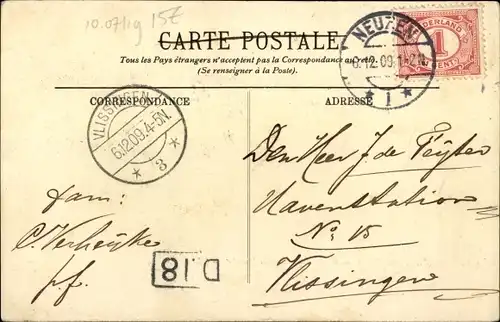 10.0719 15Z
CARTE POSTALE
Tous les Pays étrangers n'acceptent pas la Correspondance au recto.
(Se renseigner à la Poste).
CORRESPONDANCE
ADRESSE
NEUZEN
6.12.09.1-2N.
1
NEDERLAND
1
CENT
VLISSINGEN
6.12.09.4-5N.
3
Den Heer J de Feijter
Havenstation
No 15
Vlissingen
fam:
C. Verheijke
pf.
D.18